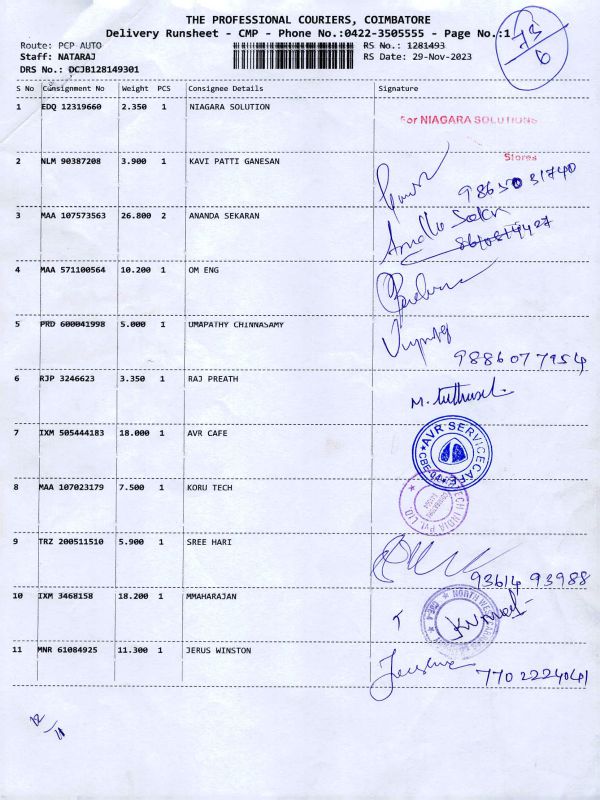 THE PROFESSIONAL COURIERS, COIMBATORE
Delivery Runsheet - CMP - Phone No.:0422-3505555 - Page No.:1
Route: PCP AUTO RS No.: 1281493
Staff: NATARAJ RS Date: 29-Nov-2023
DRS No.: DCJB128149301
S No Consignment No Weight PCS Consignee Details Signature
1 EDQ 12319660 2.350 1 NIAGARA SOLUTION
For NIAGARA SOLUTIONS
Stores
2 NLM 90387208 3.900 1 KAVI PATTI GANESAN
98650 31740
3 MAA 107573563 26.800 2 ANANDA SEKARAN
4 MAA 571100564 10.200 1 OM ENG
5 PRD 600041998 5.000 1 UMAPATHY CHINNASAMY
9886077954
6 RJP 3246623 3.350 1 RAJ PREATH
7 IXM 505444183 18.000 1 AVR CAFE
AVR SERVICE CAFE
8 MAA 107023179 7.500 1 KORU TECH
TECH INDIA Pvt. LTD.
9 TRZ 200511510 5.900 1 SREE HARI
93614 93988
10 IXM 3468158 18.200 1 MMAHARAJAN
11 MNR 61084925 11.300 1 JERUS WINSTON
7702224041